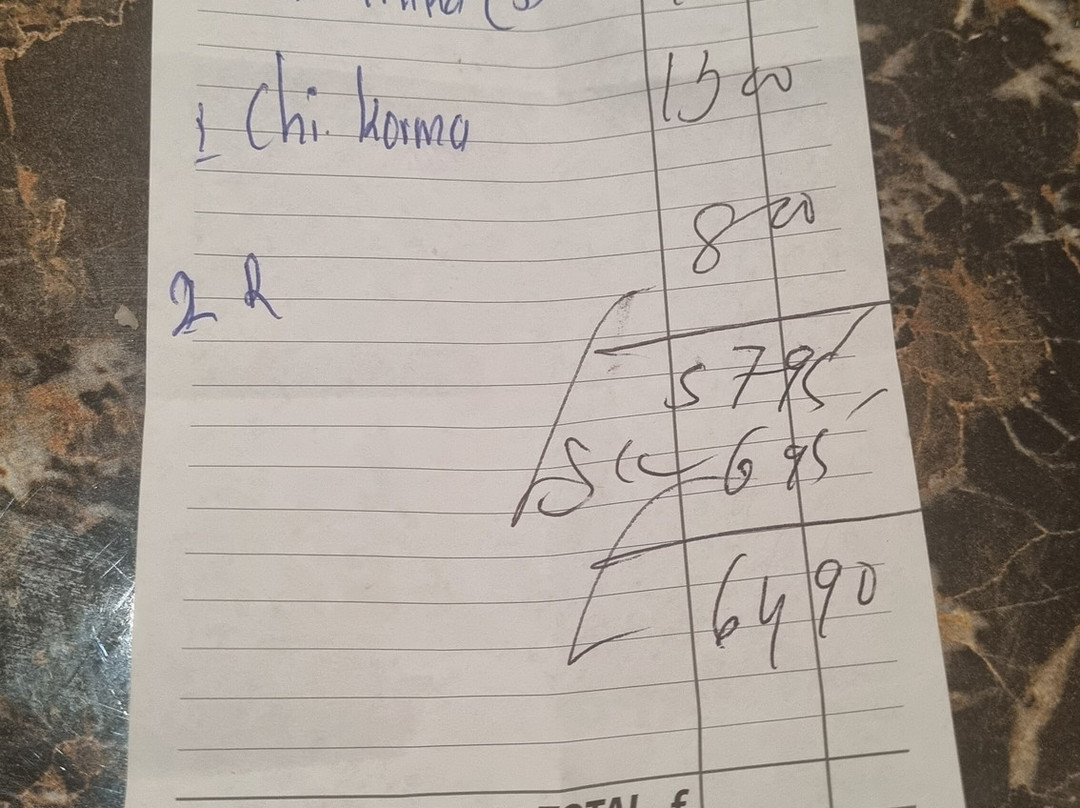 1 Chi. korma 15 00
8 00
2 R
57 95
SC 6 95
64 90
TOTAL £